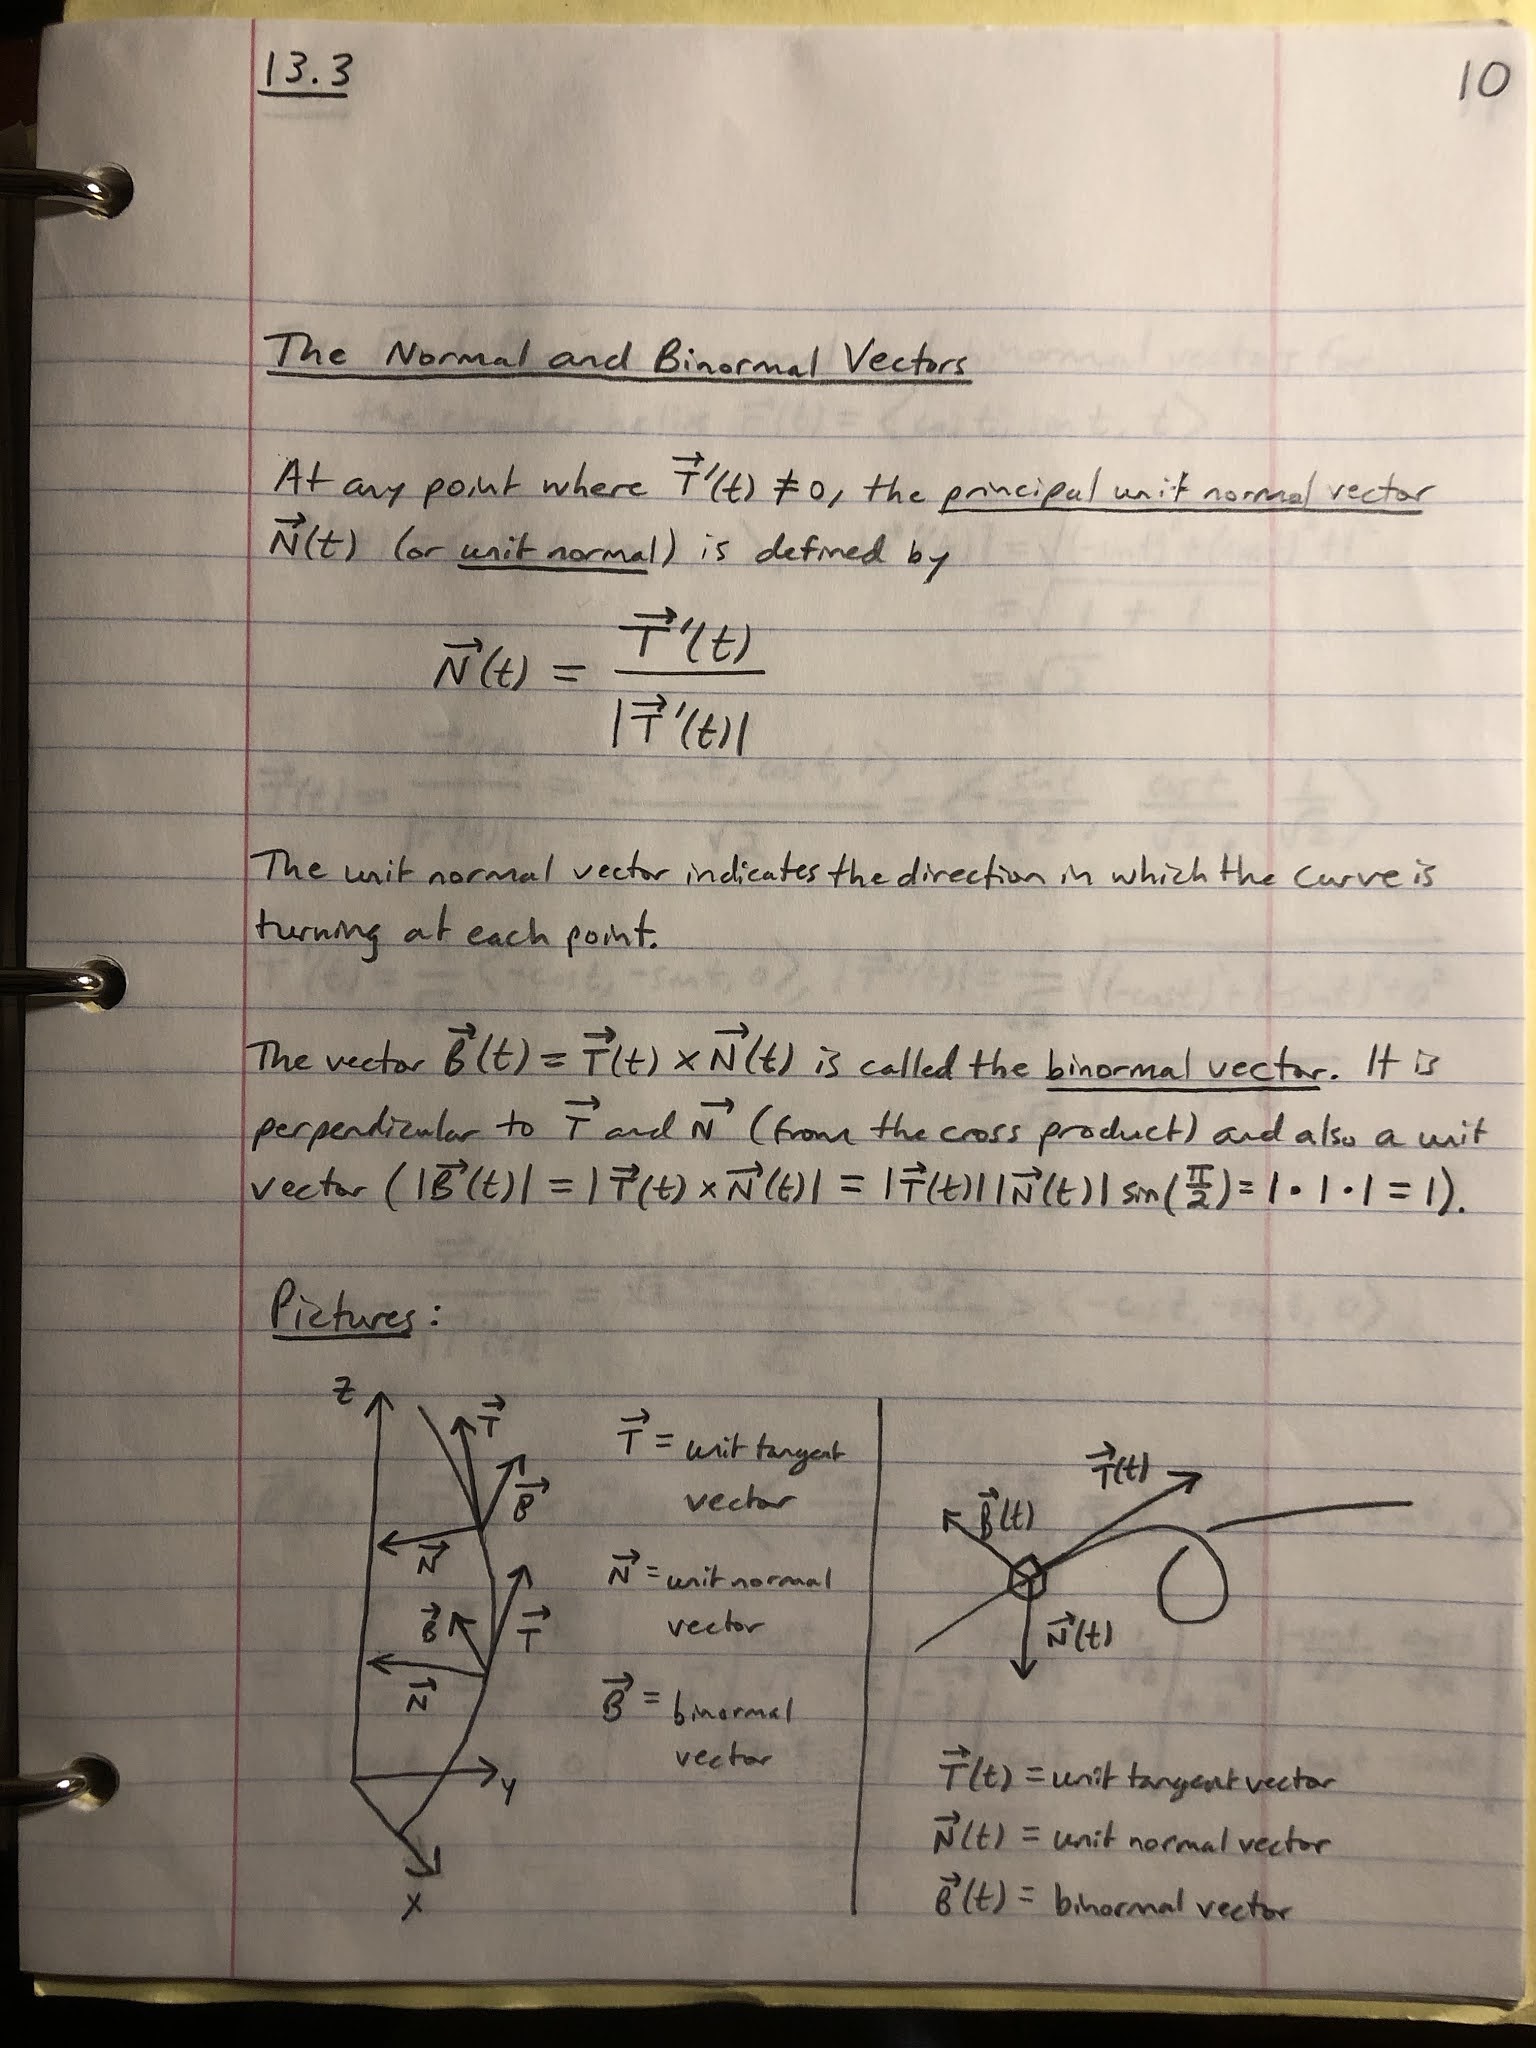 13.3
10
The Normal and Binormal Vectors
At any point where T⃗'(t) ≠ 0, the principal unit normal vector
N⃗(t) (or unit normal) is defined by
N⃗(t) = T⃗'(t) / |T⃗'(t)|
The unit normal vector indicates the direction in which the curve is
turning at each point.
The vector B⃗(t) = T⃗(t) × N⃗(t) is called the binormal vector. It is
perpendicular to T⃗ and N⃗ (from the cross product) and also a unit
vector (|B⃗(t)| = |T⃗(t) × N⃗(t)| = |T⃗(t)||N⃗(t)| sin(π/2) = 1 · 1 · 1 = 1).
Pictures:
z
T⃗
B⃗
N⃗
B⃗
T⃗
N⃗
y
x
T⃗ = unit tangent
vector
N⃗ = unit normal
vector
B⃗ = binormal
vector
T⃗(t)
B⃗(t)
N⃗(t)
T⃗(t) = unit tangent vector
N⃗(t) = unit normal vector
B⃗(t) = binormal vector